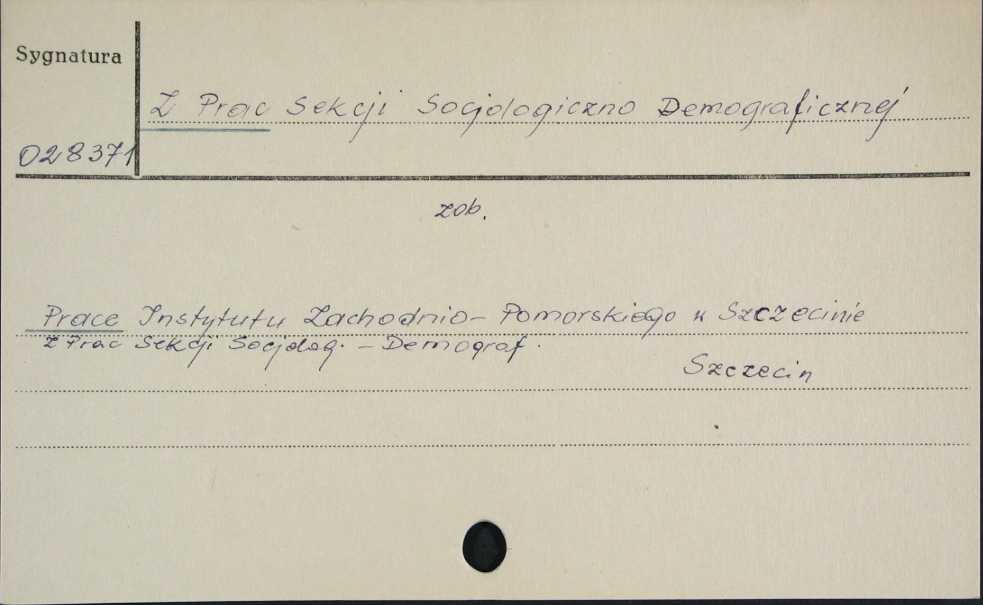 Sygnatura
Z Prac Sekcji Socjologiczno Demograficznej
028371
zob.
Prace Instytutu Zachodnio-Pomorskiego w Szczecinie
Z Prac Sekcji Socjolog. - Demograf.
Szczecin